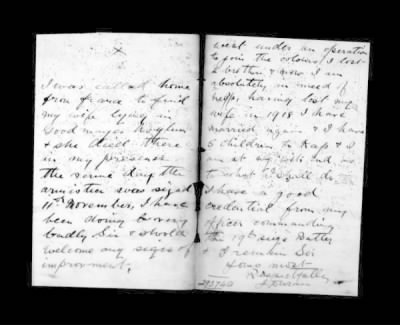 I was called home
from france to find
my wife lying in
Good mayes Asylum
& she died there
in my presence
the same day the
armistice was signed
11th November, I have
been doing very
badly Sir & should
welcome any signs of
improvment,
went under an operation
to join the colours, I lost
a brother & now I am
absolutely in need of
help, having lost my
wife in 1918 I have
married again & I have
6 children to Keep & I
am at my wits End as
to what I shall do
I have a good
credential from my
officer commanding
the 19th seige Battery
& I remain Sir
Yours most